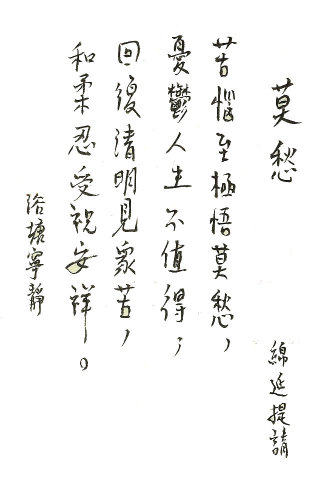 莫愁
綿延提請
苦惱至極悟莫愁，
憂鬱人生不值得，
回復清明見眾苦，
和柔忍受祝安祥。
浴塘寧靜